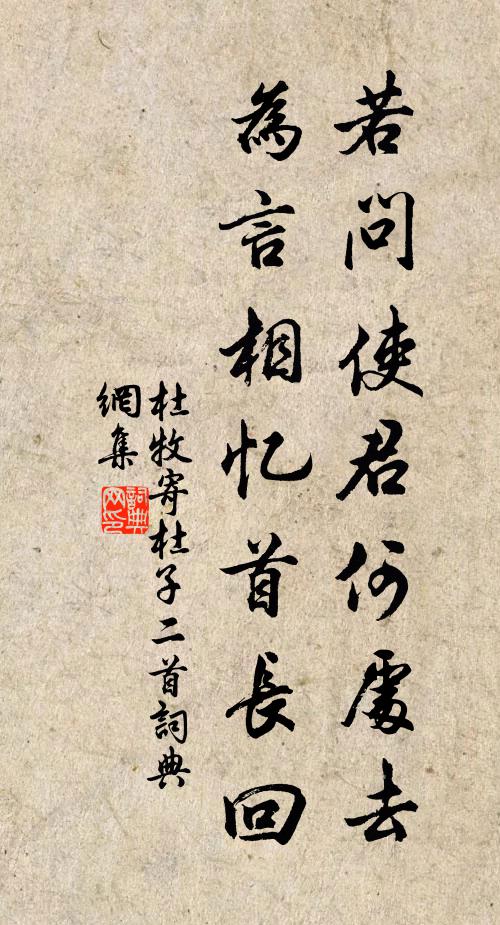 若問使君何處去
為言相忆首長回
杜牧寄杜子二首詞典
網集
詞典網印